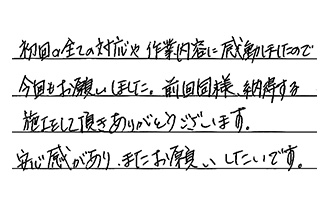 初回の全ての対応や作業内容に感動しましたので
今回もお願いしました。前回同様、納得する
施工をして頂きありがとうございます。
安心感があり、またお願いしたいです。